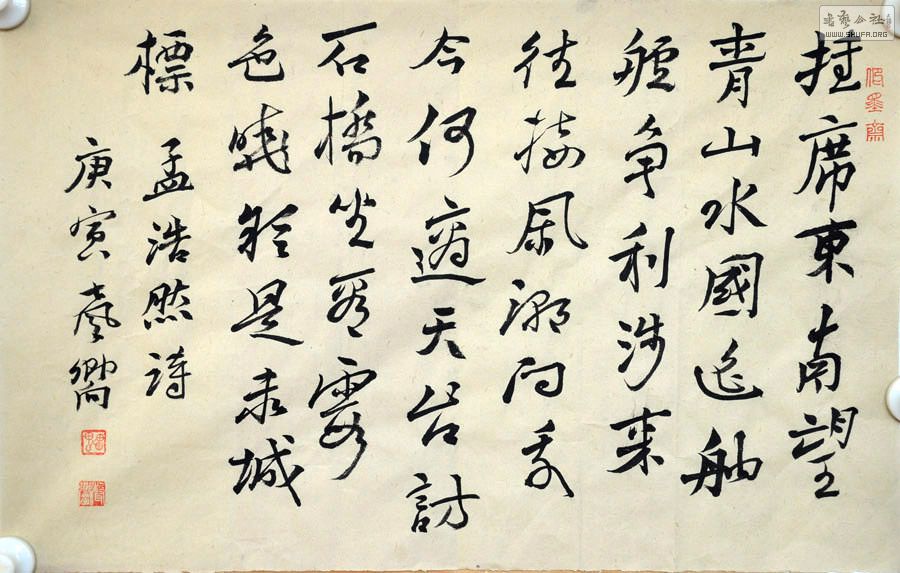 書藝公社
WWW.SHUFA.ORG
挂席東南望
青山水國遥舳
艫争利涉来
往接風潮问我
今何適天台訪
石橋坐看霞
色曉疑是赤城
標 孟浩然詩
庚寅